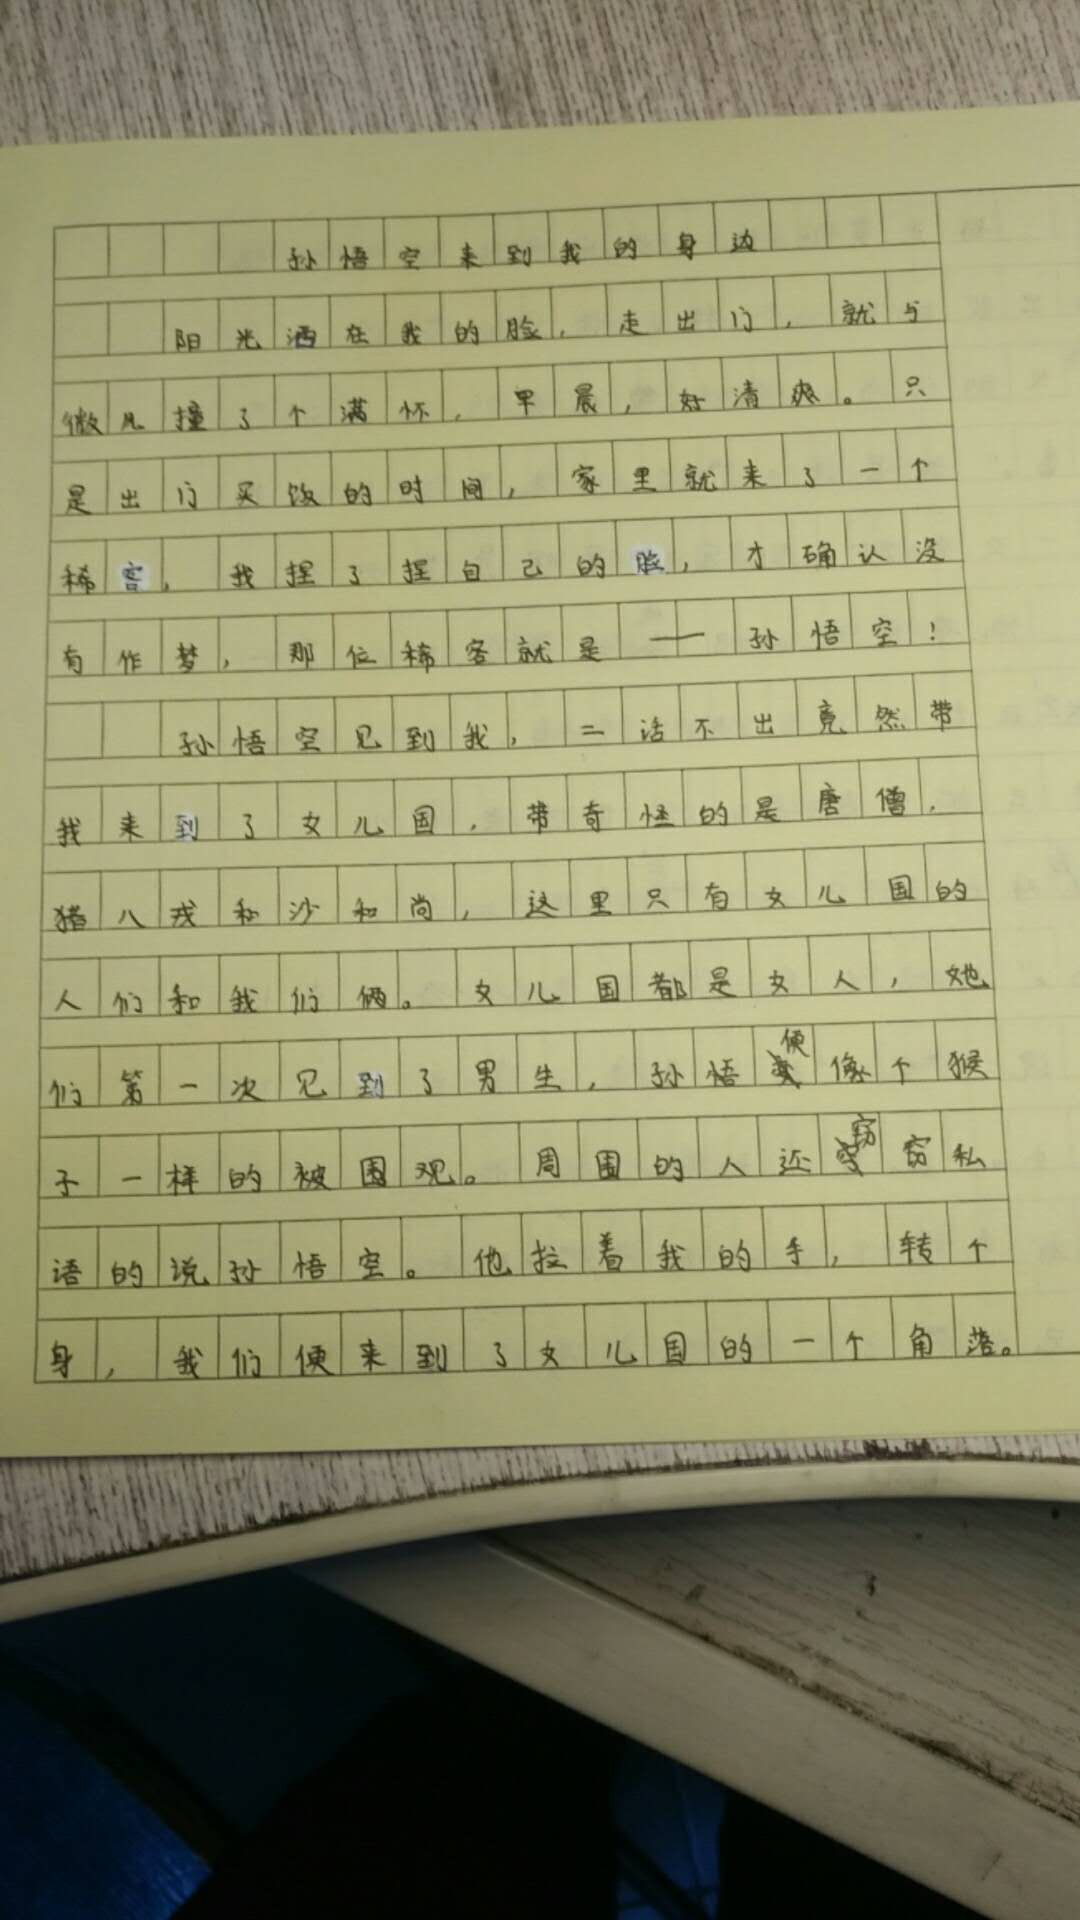 孙悟空来到我的身边
阳光洒在我的脸，走出门，就与
微风撞了个满怀，早晨，好清爽。只
是出门买饭的时间，家里就来了一个
稀客，我捏了捏自己的脸，才确认没
有作梦，那位稀客就是——孙悟空！
孙悟空见到我，二话不出竟然带
我来到了女儿国，带奇怪的是唐僧，
猪八戎和沙和尚，这里只有女儿国的
人们和我们俩。女儿国都是女人，她
们第一次见到了男生，孙悟便像个猴
子一样的被围观。周围的人还窃窃私
语的说孙悟空。他拉着我的手，转个
身，我们便来到了女儿国的一个角落。